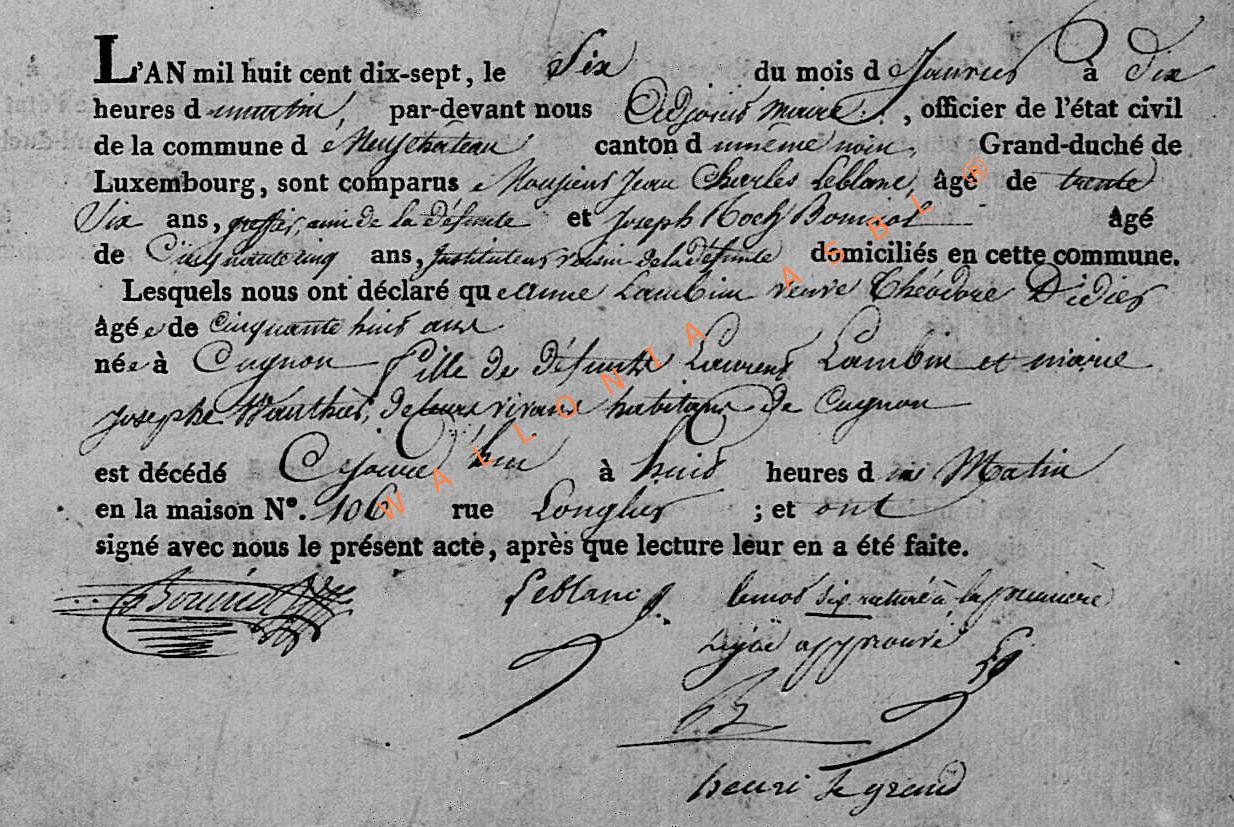 L'AN mil huit cent dix-sept, le Six du mois d Janvier à Dix
heures d u matin, par-devant nous Adjoint Maire, officier de l'état civil
de la commune d e Neufchateau canton d u même nom, Grand-duché de
Luxembourg, sont comparus Monsieur Jean Charles Leblanc, âgé de trente
Six ans, greffier, ami de la défunte et Joseph Roch âgé
de Cinquante cinq ans, Instituteur voisin de la défunte domiciliés en cette commune.
Lesquels nous ont déclaré qu e Anne Lambin veuve Théodore Didier
âgé e de Cinquante huit ans
née à Cugnon fille de défunts Laurent Lambin et marie
josephe Wauthier, de leurs vivans habitans de Cugnon
est décédé Ce jourd'hui à huit heures d u Matin
en la maison N°. 106 rue Longlier ; et ont
signé avec nous le présent acte, après que lecture leur en a été faite.
Leblanc le mot six raturé à la première
ligne approuvé
henri le grand
WALLONIA ASBL ®